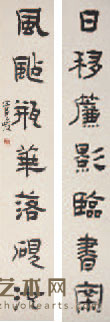 日移簾影臨書案
風颭瓶華落硯池